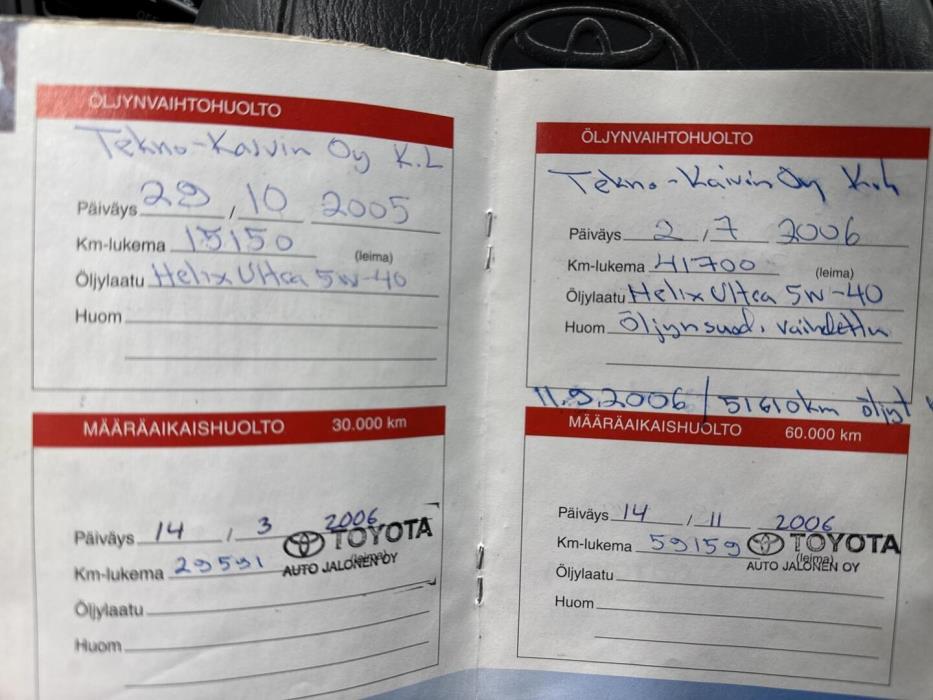 ÖLJYNVAIHTOHUOLTO
Tekno-Kaivin Oy K.L
Päiväys 29 / 10 2005
Km-lukema 15150
(leima)
Öljylaatu Helix Ultra 5w-40
Huom
MÄÄRÄAIKAISHUOLTO 30.000 km
Päiväys 14 / 3 2006
TOYOTA
Km-lukema 29591
(leima)
AUTO JALONEN OY
Öljylaatu
Huom
ÖLJYNVAIHTOHUOLTO
Tekno-Kaivin Oy K.L
Päiväys 2 / 7 2006
Km-lukema 41700
(leima)
Öljylaatu Helix Ultra 5w-40
Huom Öljynsuod. vaihdettu
11.9.2006 / 51610km öljyt
MÄÄRÄAIKAISHUOLTO 60.000 km
Päiväys 14 / 11 2006
Km-lukema 59159
TOYOTA
(leima)
AUTO JALONEN OY
Öljylaatu
Huom